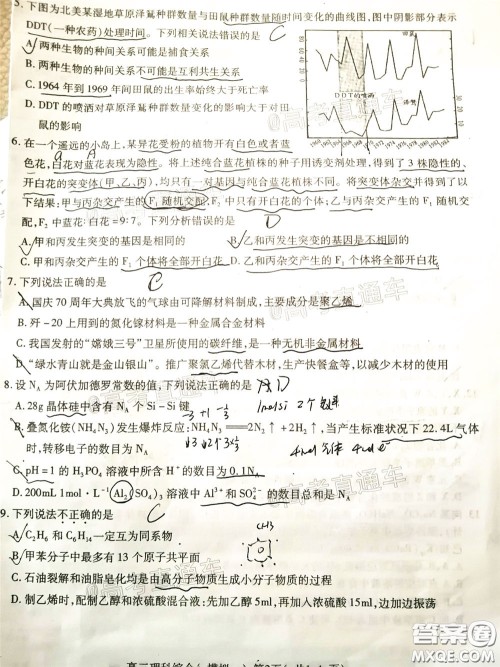 5. 下图为北美某湿地草原泽鵟种群数量与田鼠种群数量随时间变化的曲线图,图中阴影部分表示
DDT(一种农药)处理时间。下列相关说法错误的是 C
A. 两种生物的种间关系可能是捕食关系
B. 两种生物的种间关系不可能是互利共生关系
C. 1964 年到 1969 年间田鼠的出生率始终大于死亡率
D. DDT 的喷洒对草原泽鵟种群数量变化的影响大于对田
鼠的影响
田鼠
DDT的喷洒
泽鵟
6. 在一个遥远的小岛上,某异花受粉的植物开有白色或者蓝
色花,白花对蓝花表现为隐性。将上述纯合蓝花植株的种子用诱变剂处理,得到了 3 株隐性的、
开白花的突变体(甲、乙、丙),均只有一对基因与纯合蓝花植株不同。将突变体杂交并得到以
下结果:甲与丙杂交产生的 F₁ 随机交配,F₂ 中全开白花;乙与丙杂交产生的 F₁ 随机交配,
F₂ 中蓝花:白花=9:7。下列分析错误的是 D
A. 甲和丙发生突变的基因是相同的 B. 乙和丙发生突变的基因是不相同的
C. 甲和丙杂交产生的 F₁ 个体将全部开白花 D. 乙和丙杂交产生的 F₁ 个体将全部开白花
7. 下列说法正确的是 C
A. 国庆 70 周年大典放飞的气球由可降解材料制成,主要成分是聚乙烯
B. 歼-20 上用到的氮化镓材料是一种金属合金材料
C. 我国发射的“嫦娥四号”卫星所使用的碳纤维,是一种无机非金属材料
D. “绿水青山就是金山银山”。推广聚氯乙烯代替木材,生产快餐盒等,以减少木材的使用
8. 设 Nₐ 为阿伏加德罗常数的值,下列说法正确的是 D
A. 28g 晶体硅中含有 Nₐ 个 Si-Si 键
B. 叠氮化铵(NH₄N₃)发生爆炸反应:NH₄N₃══2N₂↑+2H₂↑,当产生标准状况下 22.4L 气体
时,转移电子的数目为 Nₐ
C. pH=1 的 H₃PO₄ 溶液中所含 H⁺ 的数目为 0.1Nₐ
D. 200mL 1mol·L⁻¹Al₂(SO₄)₃ 溶液中 Al³⁺ 和 SO₄²⁻ 的数目总和是 Nₐ
9. 下列说法不正确的是 C
A. C₂H₆ 和 C₆H₁₄ 一定互为同系物
B. 甲苯分子中最多有 13 个原子共平面
C. 石油裂解和油脂皂化均是由高分子物质生成小分子物质的过程
D. 制乙烯时,配制乙醇和浓硫酸混合液:先加乙醇 5ml,再加入浓硫酸 15ml,边加边振荡